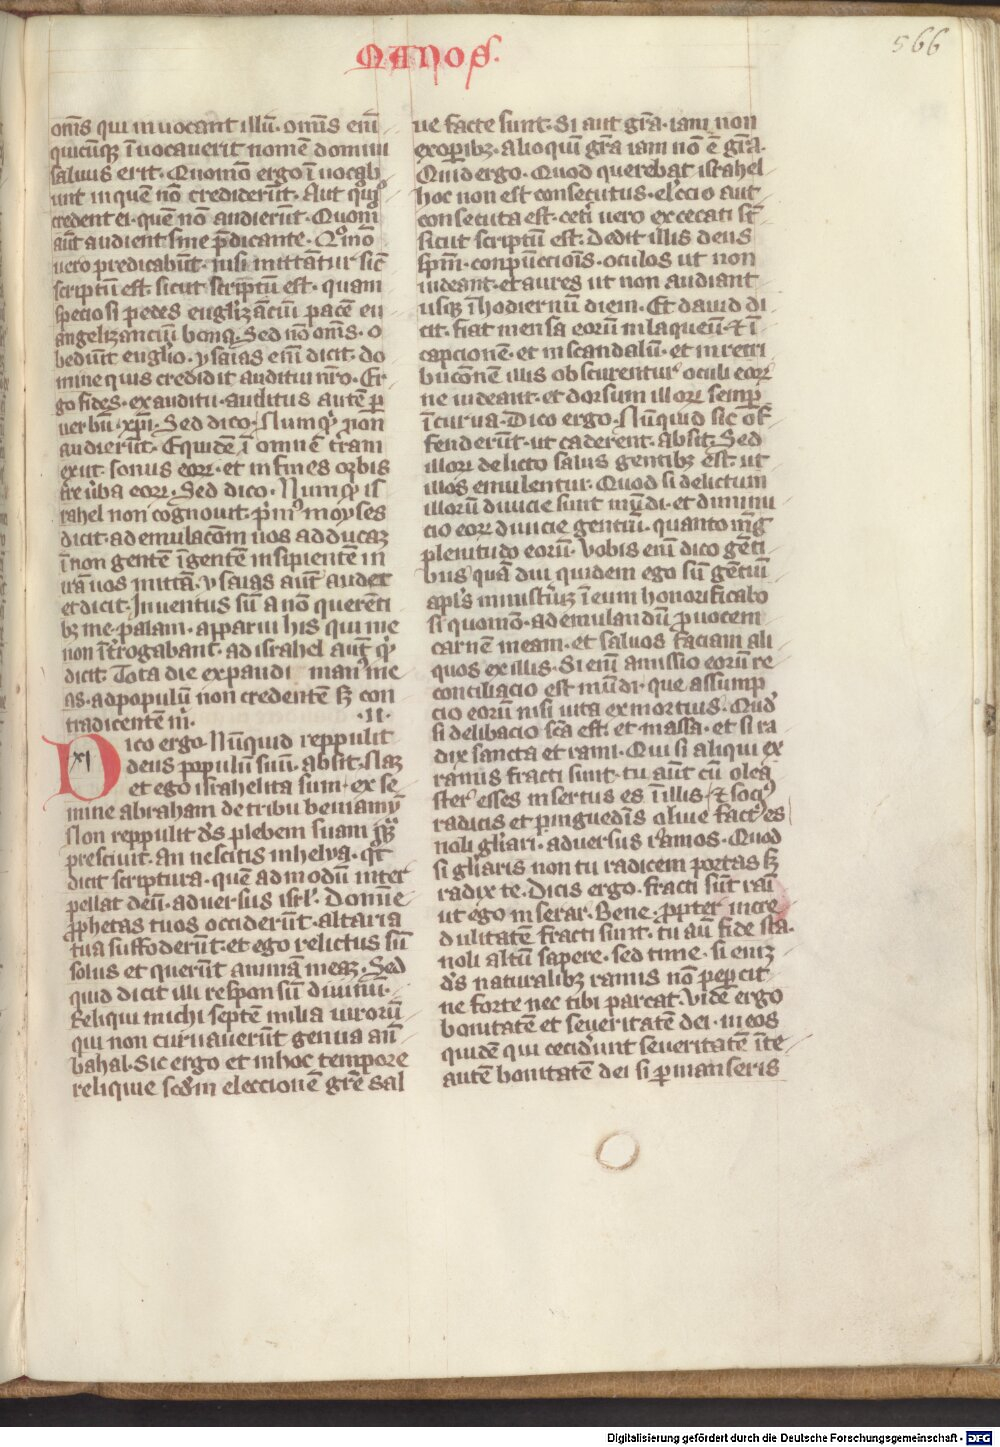 MANOS.
566
om̄s qui inuocant illū. om̄s enī
quicūqꝫ īuocauerit nomē domini
saluus erit. Quomō ergo īuocab
unt in quē nō crediderūt. Aut quō
credent ei. quē nō audierūt. Quom̄
aūt audient sine p̄dicante. Quō
uero predicabūt. nisi mittatur sic̄
scriptū est. sicut scriptū est. quam
speciosi pedes euglizāciū pacē eu
angelizanciū bona. Sed nō om̄s. o
bediūt euglio. ysaias enī dicit. do
mine quis credidit auditui nr̄o. Er
go fides. ex auditu. auditus autē ꝑ
uerbū. xp̄i. Sed dico. Numqͥd non
audierūt. Equidē ī omnē tr̄am
exiit. sonus eorꝝ. et in fines orbis
t̄re ūba eorꝝ. Sed dico. Numqͥd is
rahel non cognouit. p̄mꝰ moyses
dicit. ad emulacōm uos adducaꝫ
ī non gentē ī gentē insipientē in
irā uos mittā. ysaias aūt audet
et dicit. Inuentus sū a non querēti
bꝫ me. palam. apparui his qui me
non īt̄rogabant. ad israhel aut̄ qͥd
dicit. Tota die expandi manꝰ me
as. ad populū non credentē sꝫ con
tradicentē m̄. .II.
XI
Dico ergo. Nūquid reppulit
deus populū suū. absit. Naꝫ
et ego israhelita sum. ex se
mine abraham de tribu beniamȳ
Non reppulit ds̄ plebem suam quā
presciuit. An nescitis in helya. qͥd
dicit scriptura. quē ad modū inter
pellat deū. aduersus isrl̄. Domīe
ꝓphetas tuos occiderūt. altaria
tua suffoderūt. et ego relictus sū
solus et querūt animā meaꝫ. Sed
quid dicit illi responsū diuinū.
Reliqui michi septē milia uirorū
qui non curuauerūt genua an̄
bahal. Sic ergo et in hoc tempore
reliquie scd̄m eleccionē gr̄e sal
ue facte sunt. Si aut gr̄a. iam non
ex oꝑibꝫ. alioquī gr̄a iam nō ē gr̄a.
Quid ergo. Quod querebat israhel
hoc non est consecutus. eleccio aut
consecuta est. cet̄i uero excecati sūt
sicut scriptū est. Dedit illis deus
spm̄. conpūccionis. oculos ut non
uideant. et aures ut non audiant
usqꝫ ī hodiernū diem. Et dauid di
cit. fiat mensa eorū in laqueū. ⁊ ī
capcionē. et in scandalū. et in retri
bucōnē illis obscurentur oculi eorꝝ
ne uideant. et dorsum illorꝝ semꝑ
īcurua. Dico ergo. Nūquid sic of
fenderūt. ut caderent. absit. Sed
illorꝝ delicto salus gentibꝫ est. ut
illos emulentur. Quod si delictum
illorū diuicie sunt mūdi. et diminu
cio eorꝝ diuicie gentiū. quanto mag̅
plenitudo eorū. Vobis enī dico gēti
bus quā diu quidem ego sū gētiū
apl̄s ministeriū meum honorificabo
si quomō. ad emulandū ꝓuocem
carnē meam. et saluos faciam ali
quos ex illis. Si enī amissio eorū re
conciliacio est mūdi. que assump
cio eorū nisi uita ex mortuis. Quod
si delibacio scā est. et massa. et si ra
dix sancta et rami. Qui si aliqui ex
ramis fracti sunt. tu aūt cū olea
ster esses insertus es ī illis. ⁊ sociꝰ
radicis et pinguedīs oliue factꝰ es
noli gl̄iari. aduersus ramos. Quod
si gl̄iaris non tu radicem portas sꝫ
radix te. Dicis ergo. fracti sūt rami
ut ego inserar. Bene. ꝓpter incre
dulitatē fracti sunt. tu aū fide sta.
noli altū sapere. sed time. si enim
ds̄ naturalibꝫ ramis nō peꝑcit
ne forte nec tibi parcat. Vide ergo
bonitatē et seueritatē dei. in eos
quidē qui ceciderunt seueritatē ī te
autē bonitatē dei si ꝑmanseris
Digitalisierung gefördert durch die Deutsche Forschungsgemeinschaft - DFG